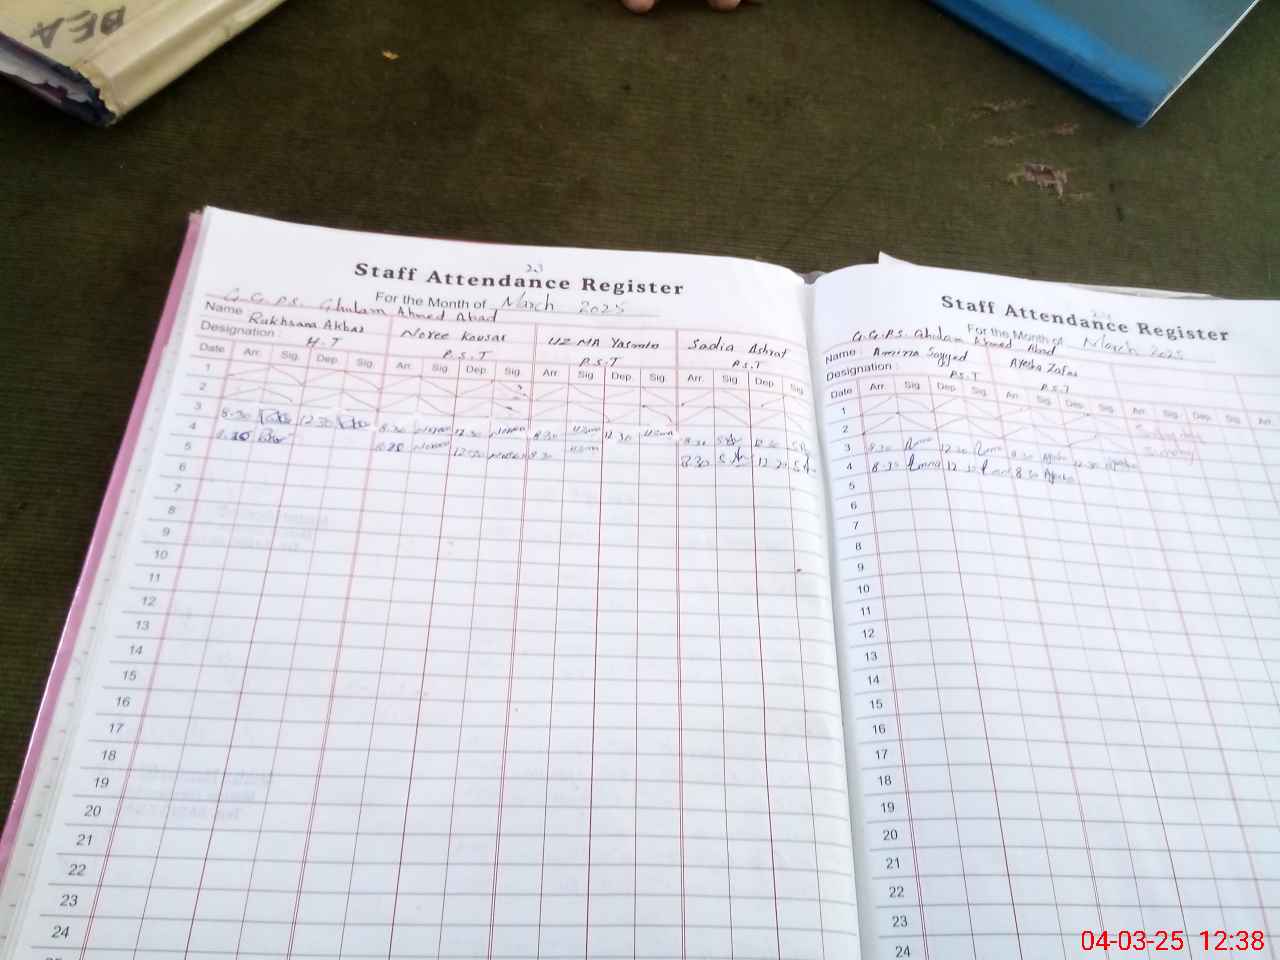 DEA
23
Staff Attendance Register
For the Month of March 2025
G.G.P.S. Ghulam Ahmed Abad
Name Rukhsana Akbar Noree Kousar UZMA Yasmin Sadia Ashraf
Designation : H.T P.S.T P.S.T P.S.T
Date Arr. Sig. Dep. Sig. Arr. Sig. Dep. Sig. Arr. Sig. Dep. Sig. Arr. Sig. Dep. Sig.
1
2
3 8.30 12.30 8.30 12.30 8.30 12.30 8.30 12.30
4 8.30 12.30 8.30 8.30 12.30
5
6
7
8
9
10
11
12
13
14
15
16
17
18
19
20
21
22
23
24
Staff Attendance Register
For the Month of March 2025
G.G.P.S. Ghulam Ahmed Abad
Name : Amina Sayyed Ayesha Zafar
Designation : P.S.T P.S.T
Date Arr. Sig. Dep. Sig. Arr. Sig. Dep. Sig. Arr. Sig. Dep. Sig. Arr.
1
2 Sunday
3 8.30 12.30 8.30 Ayesha 12.30 Ayesha
4 8.30 12.30 8.30 Ayesha
5
6
7
8
9
10
11
12
13
14
15
16
17
18
19
20
21
22
23
24
04-03-25 12:38